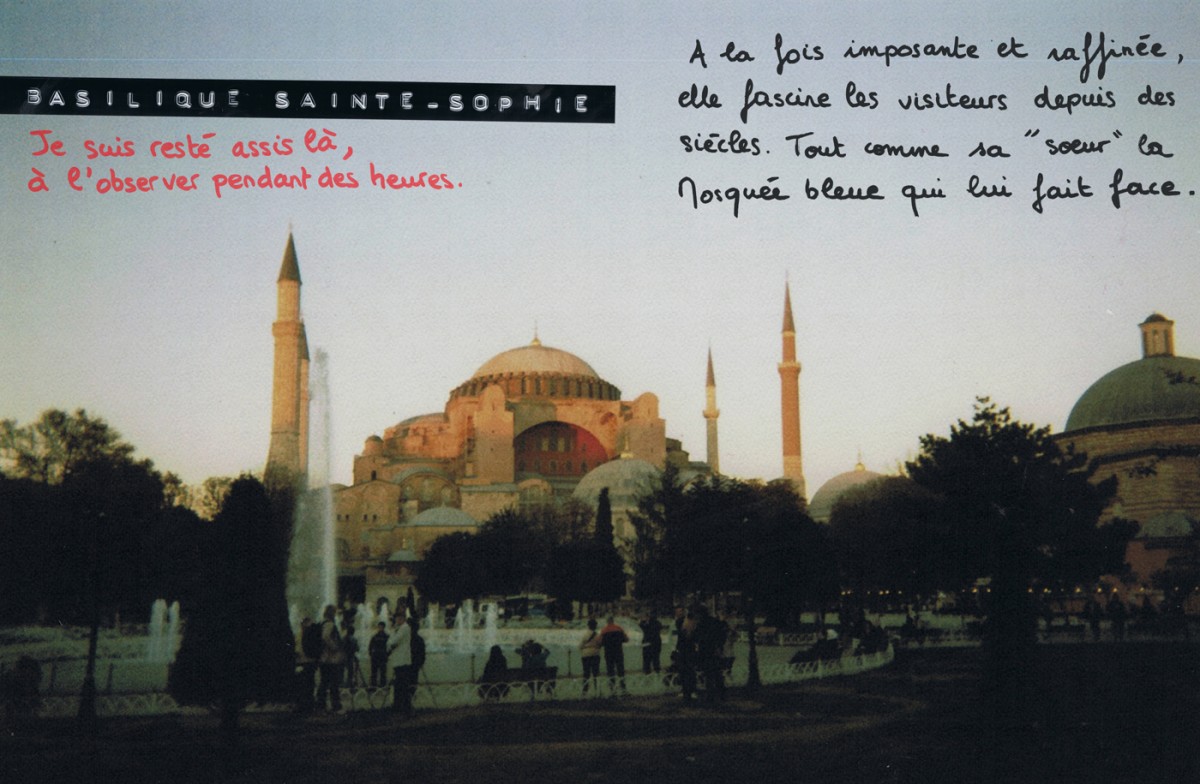 BASILIQUE SAINTE-SOPHIE
Je suis resté assis là,
à l'observer pendant des heures.
A la fois imposante et raffinée,
elle fascine les visiteurs depuis des
siècles. Tout comme sa "soeur" la
Mosquée bleue qui lui fait face.